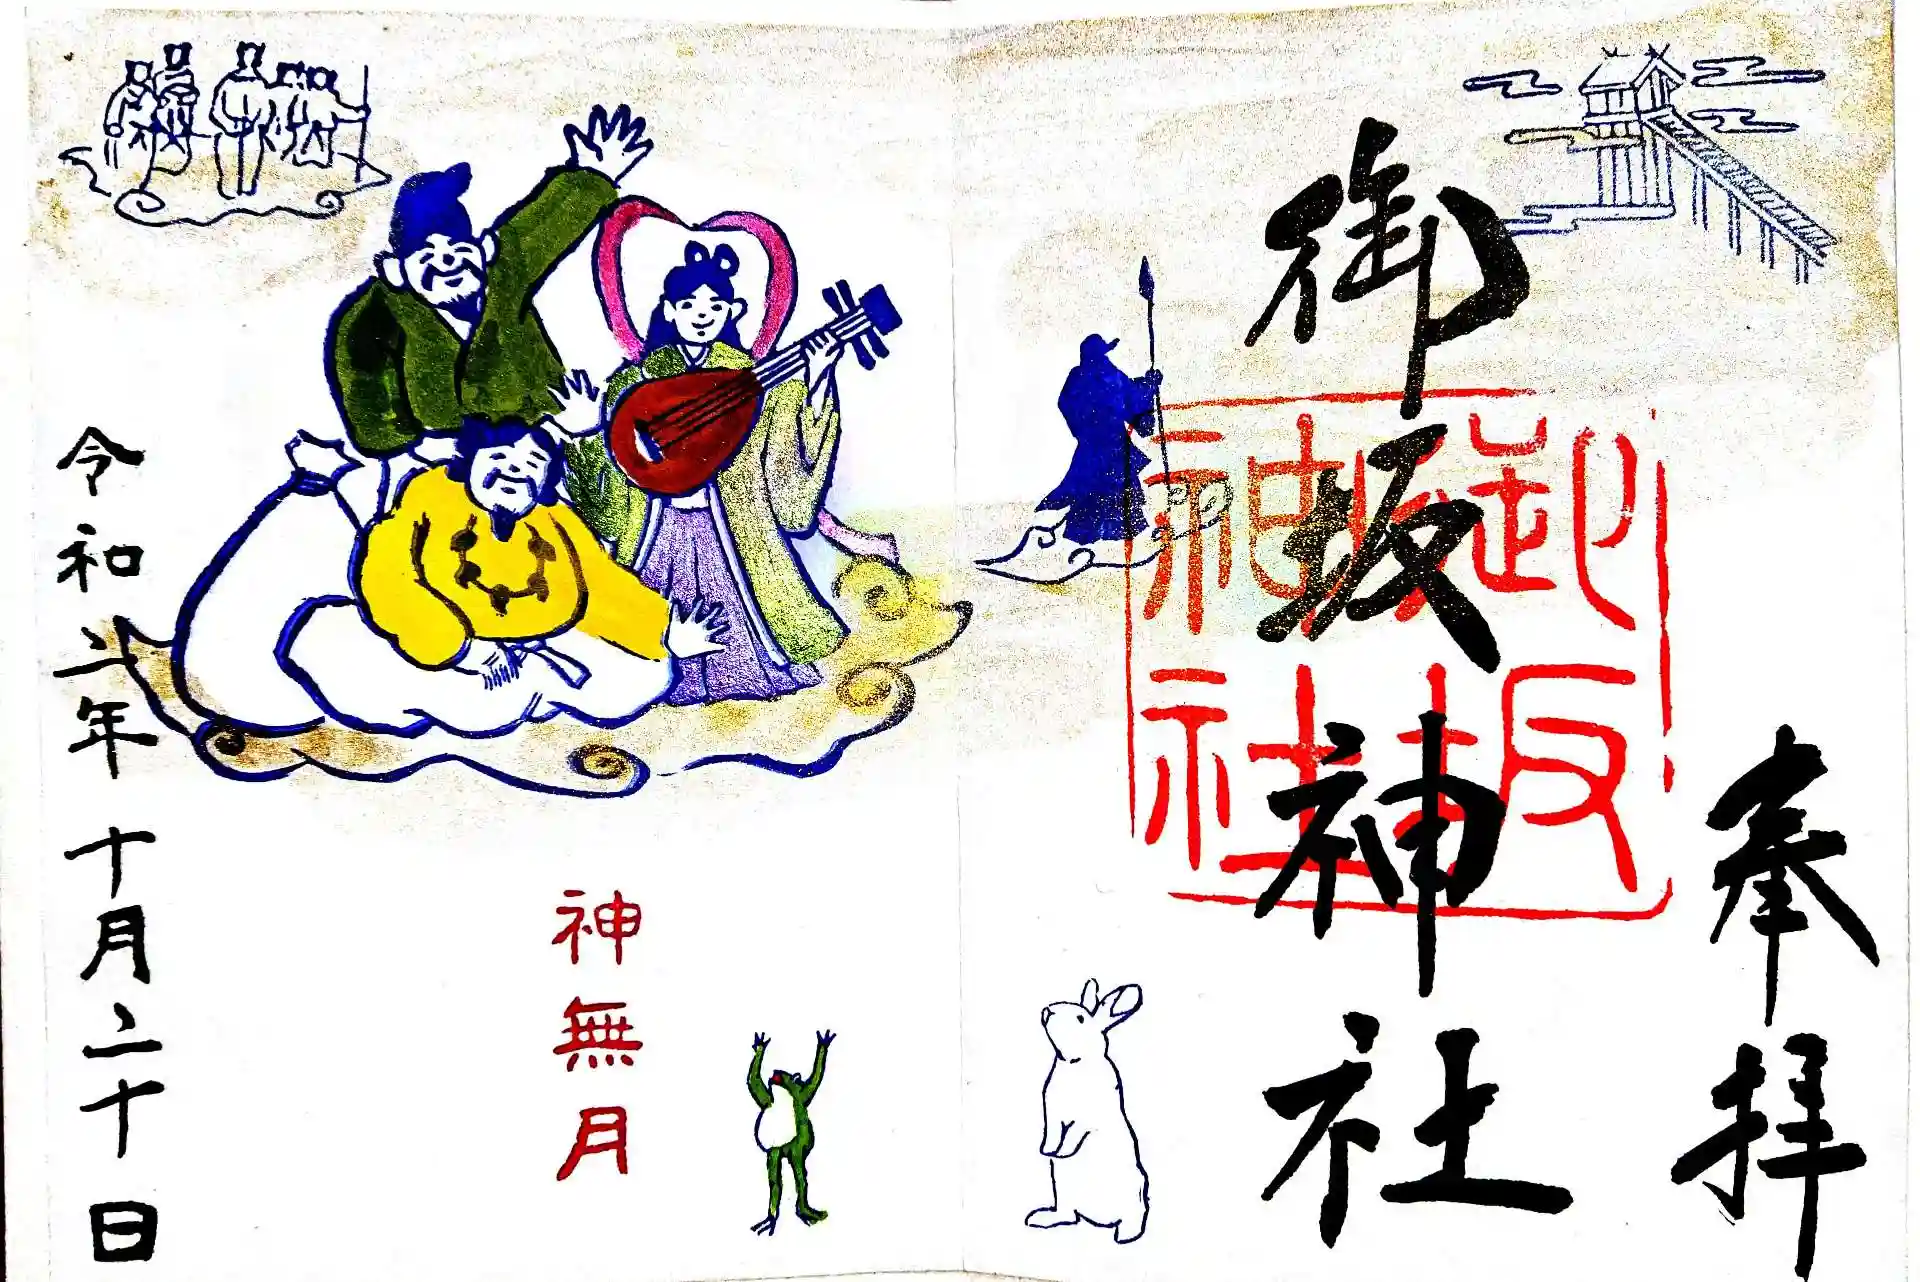 奉拝
御坂神社
御坂
神社
神無月
令和二年十月二十日